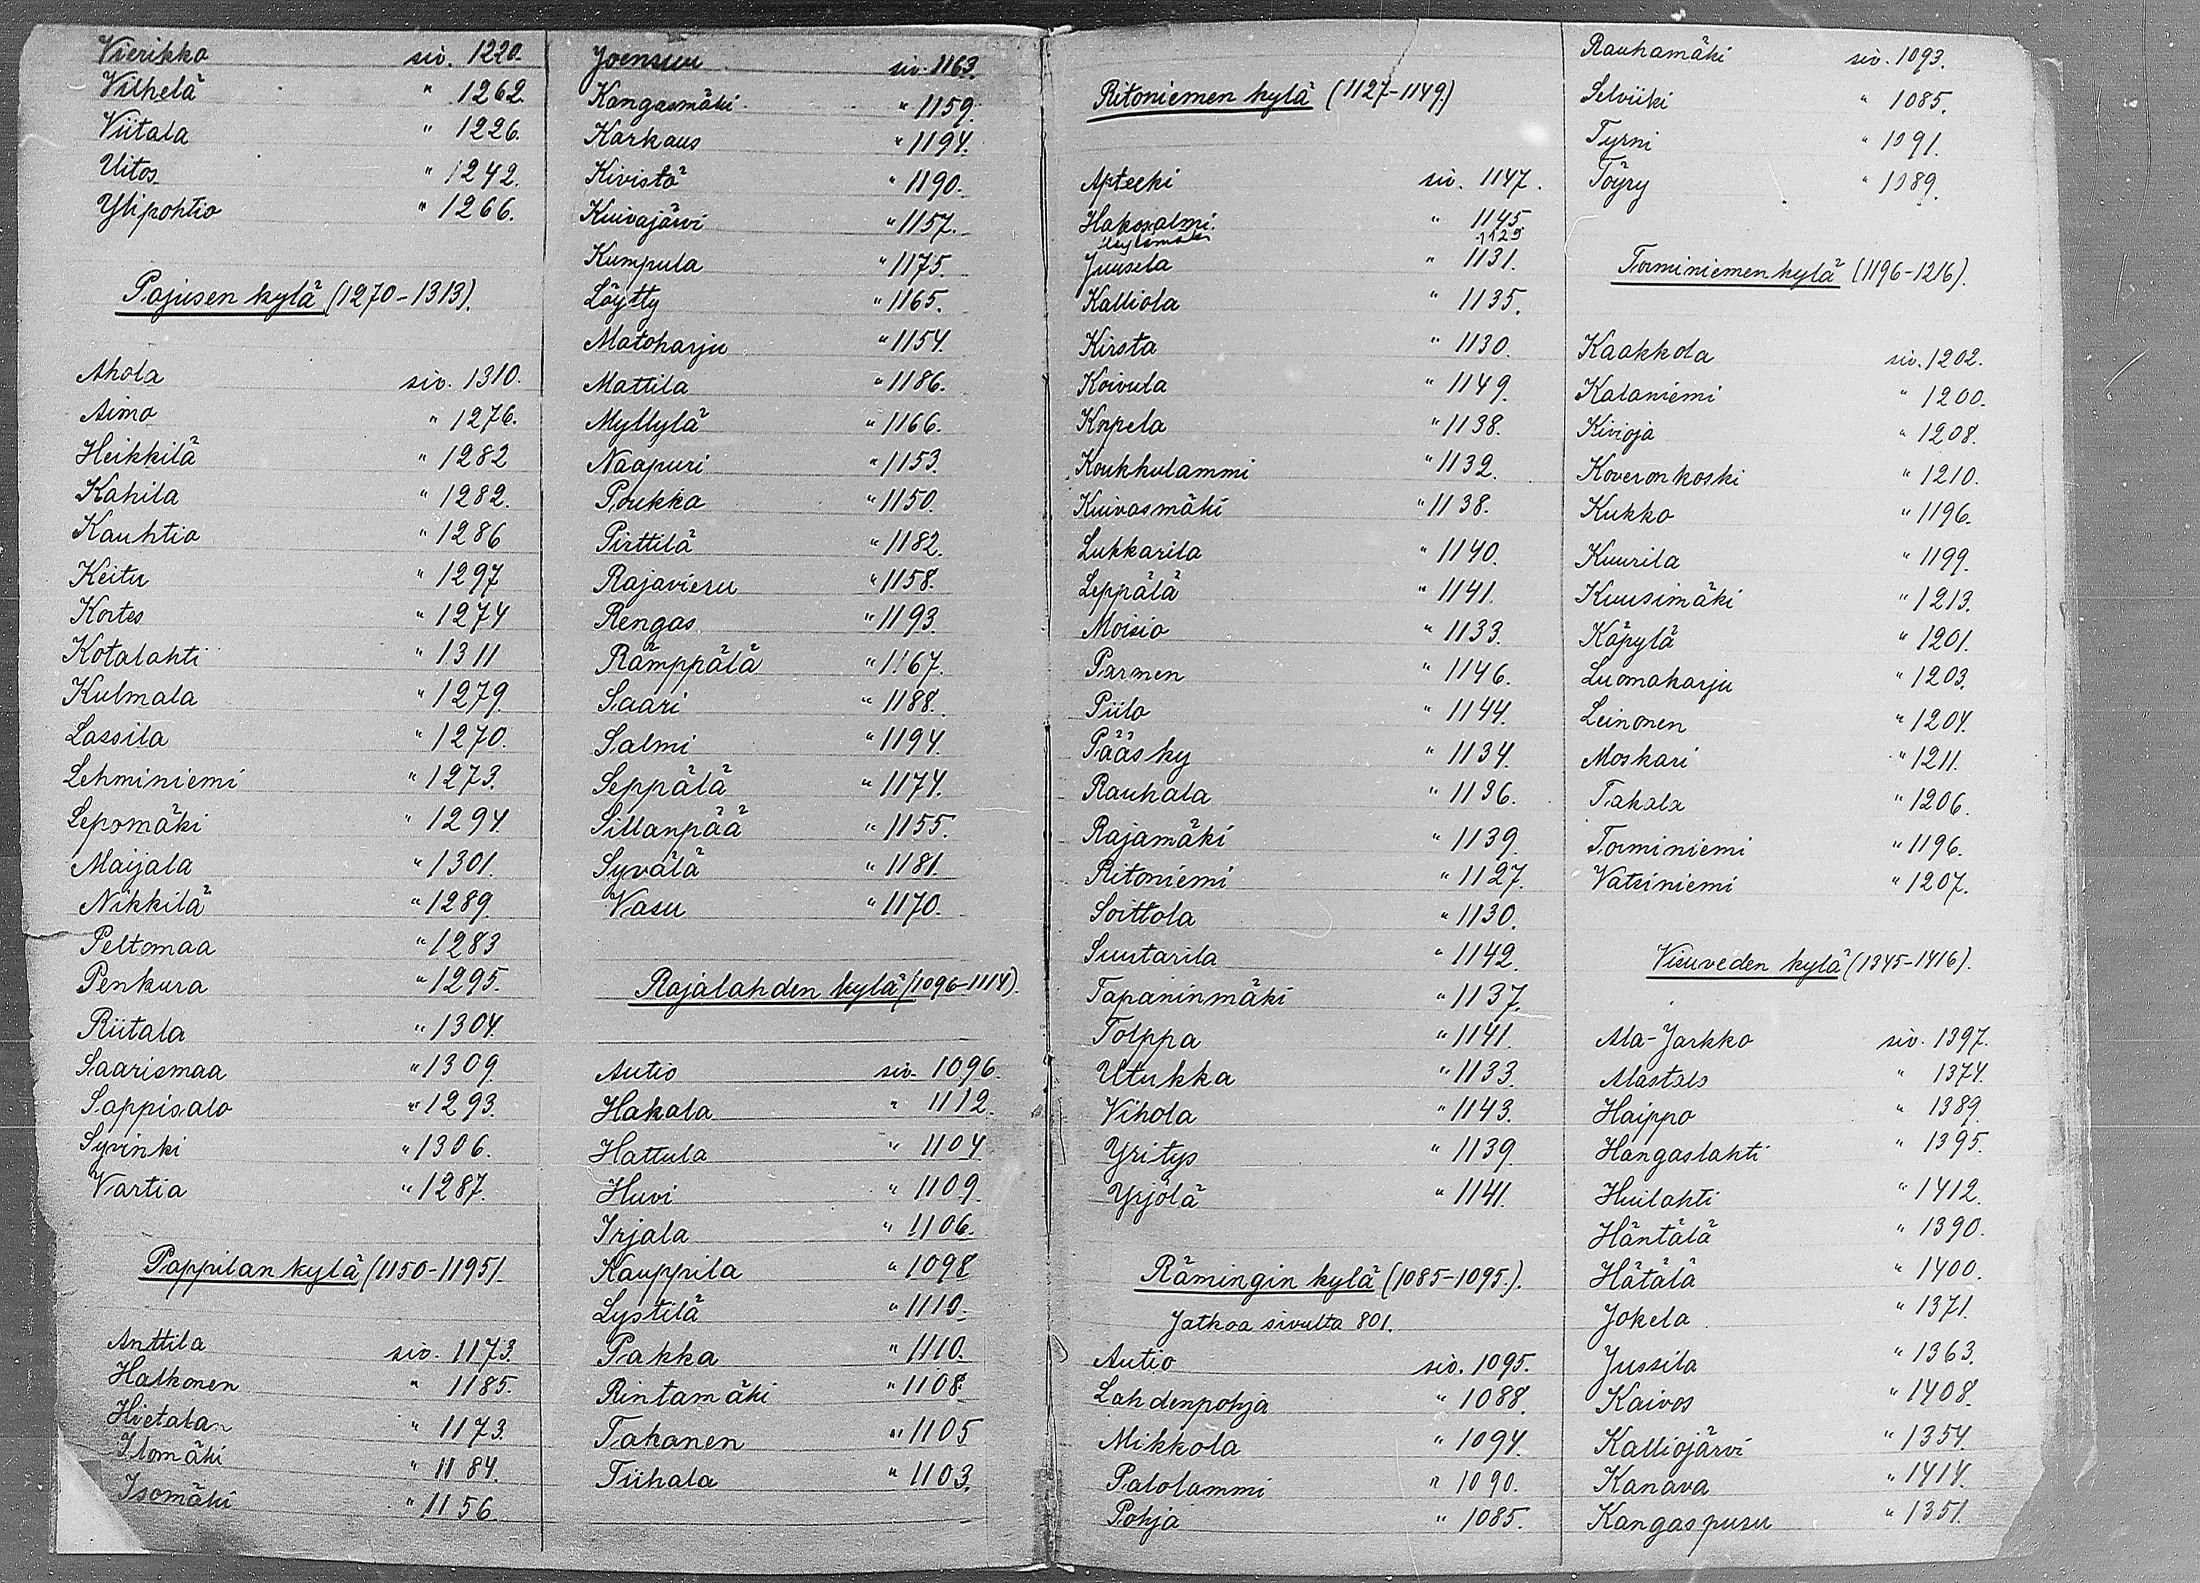 Vierikko siv. 1220.
Vilhelä " 1262.
Viitala " 1226.
Uitos " 1242.
Ylipohtio " 1266.
Pajusen kylä (1270-1313).
Ahola siv. 1310.
Aimo " 1276.
Heikkilä " 1282
Kahila " 1282.
Kauhtio " 1286
Keitu " 1297
Kortes " 1274
Kotalahti " 1311
Kulmala " 1279.
Lassila " 1270.
Lehminiemi " 1273.
Lepomäki " 1294.
Maijala " 1301.
Nikkilä " 1289.
Peltomaa " 1283
Penkura " 1295.
Riitala " 1304.
Saarismaa " 1309.
Sappisalo " 1293.
Syvinki " 1306.
Vartia " 1287.
Pappilan kylä (1150-1195).
Anttila siv. 1173.
Halkonen " 1185.
Hietalan " 1173.
Ilomäki " 1184.
Isomäki " 1156.
Joensuu siv. 1163.
Kangasmäki " 1159.
Karkaus " 1194.
Kivistö " 1190.
Kuivajärvi " 1157.
Kumpula " 1175.
Löytty " 1165.
Matoharju " 1154.
Mattila " 1186.
Myllylä " 1166.
Naapuri " 1153.
Poukka " 1150.
Pirttilä " 1182.
Rajavieru " 1158.
Rengas " 1193.
Rämppälä " 1167.
Saari " 1188.
Salmi " 1194.
Seppälä " 1174.
Sillanpää " 1155.
Syvälä " 1181.
Vasu " 1170.
Rajalahden kylä (1096-1114).
Autio siv. 1096.
Hakala " 1112.
Hattula " 1104
Huvi " 1109.
Irjala " 1106.
Kauppila " 1098
Lystilä " 1110.
Pakka " 1110.
Rintamäki " 1108.
Takanen " 1105
Tiihala " 1103.
Ritoniemen kylä (1127-1149.)
Apteeki siv. 1147.
Hakosalmi. " 1145
1129
Juusela " 1131.
Kalliola " 1135.
Kirsta " 1130.
Koivula " 1149.
Korpela " 1138.
Koukkulammi " 1132.
Kuivasmäki " 1138.
Lukkarila " 1140.
Leppälä " 1141.
Moisio " 1133.
Parmen " 1146.
Piilo " 1144.
Pääsky " 1134.
Rauhala " 1136.
Rajamäki " 1139.
Ritoniemi " 1127.
Soittola " 1130.
Suutarila " 1142.
Tapaninmäki " 1137.
Tolppa " 1141.
Utukka " 1133.
Vihola " 1143.
Yritys " 1139.
Yrjölä " 1141.
Rämingin kylä (1085-1095.).
Jatkoa sivulta 801.
Autio siv. 1095.
Lahdenpohja " 1088.
Mikkola " 1094.
Palolammi " 1090.
Pohja " 1085.
Rauhamäki siv. 1093.
Selviiki " 1085.
Tyrni " 1091.
Töyry " 1089.
Torminiemen kylä (1196-1216).
Kaakkola siv. 1202.
Kalaniemi " 1200.
Kivioja " 1208.
Koveronkoski " 1210.
Kukko " 1196.
Kuurila " 1199.
Kuusimäki " 1213.
Käpylä " 1201.
Luomaharju " 1203.
Leinonen " 1204.
Moskari " 1211.
Takala " 1206.
Torminiemi " 1196.
Vatsiniemi " 1207.
Vieuveden kylä (1345-1416).
Ala-Jarkko siv. 1397.
Alastalo " 1374.
Haippo " 1389.
Hangaslahti " 1395.
Huilahti " 1412.
Häntälä " 1390.
Hätälä " 1400.
Jokela " 1371.
Jussila " 1363.
Kaivos " 1408.
Kalliojärvi " 1354.
Kanava " 1414.
Kangaspusu " 1351.